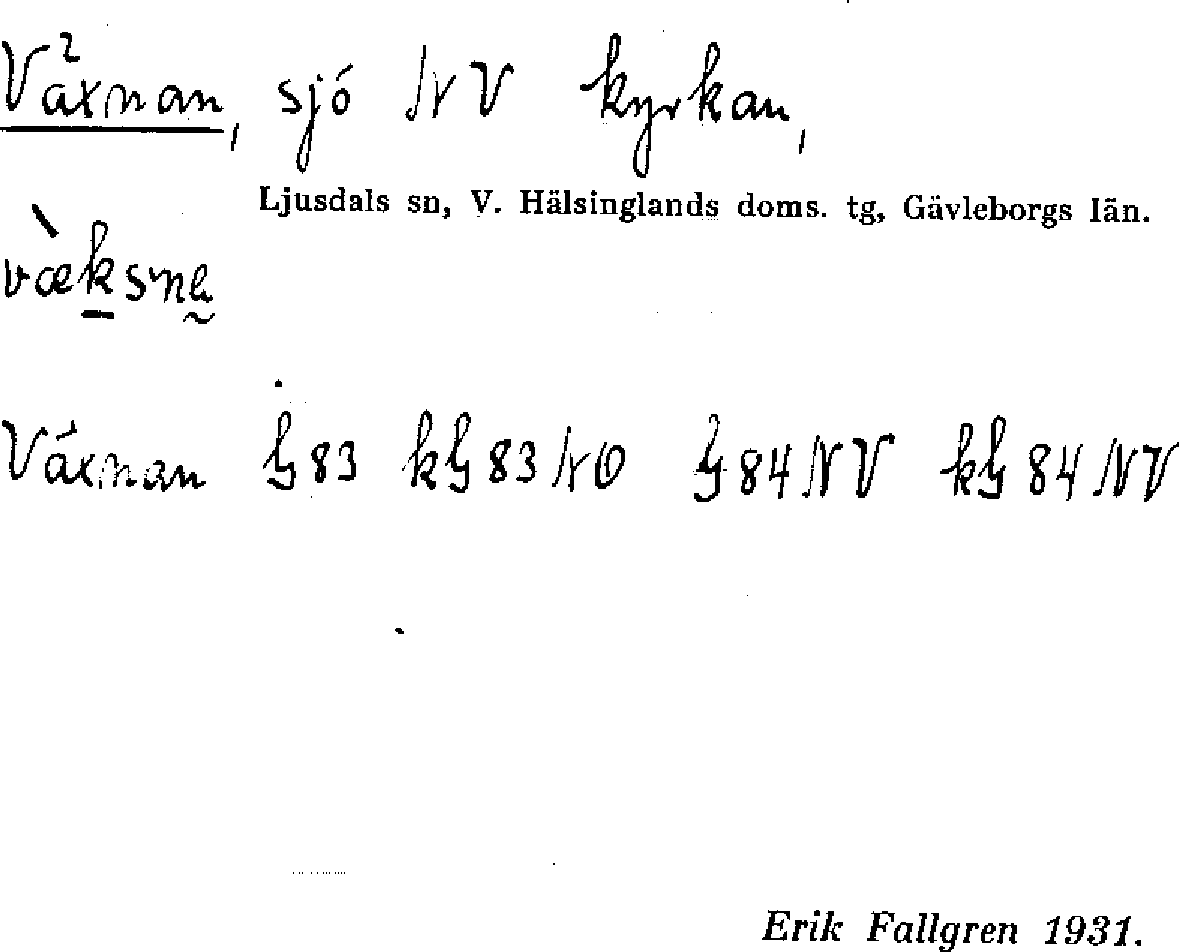 Växnan, sjö NV kyrkan,
Ljusdals sn, V. Hälsinglands doms. tg, Gävleborgs län.
Växnan G 83 kG 83 NO G 84 NV kG 84 NV
Erik Fallgren 1931.